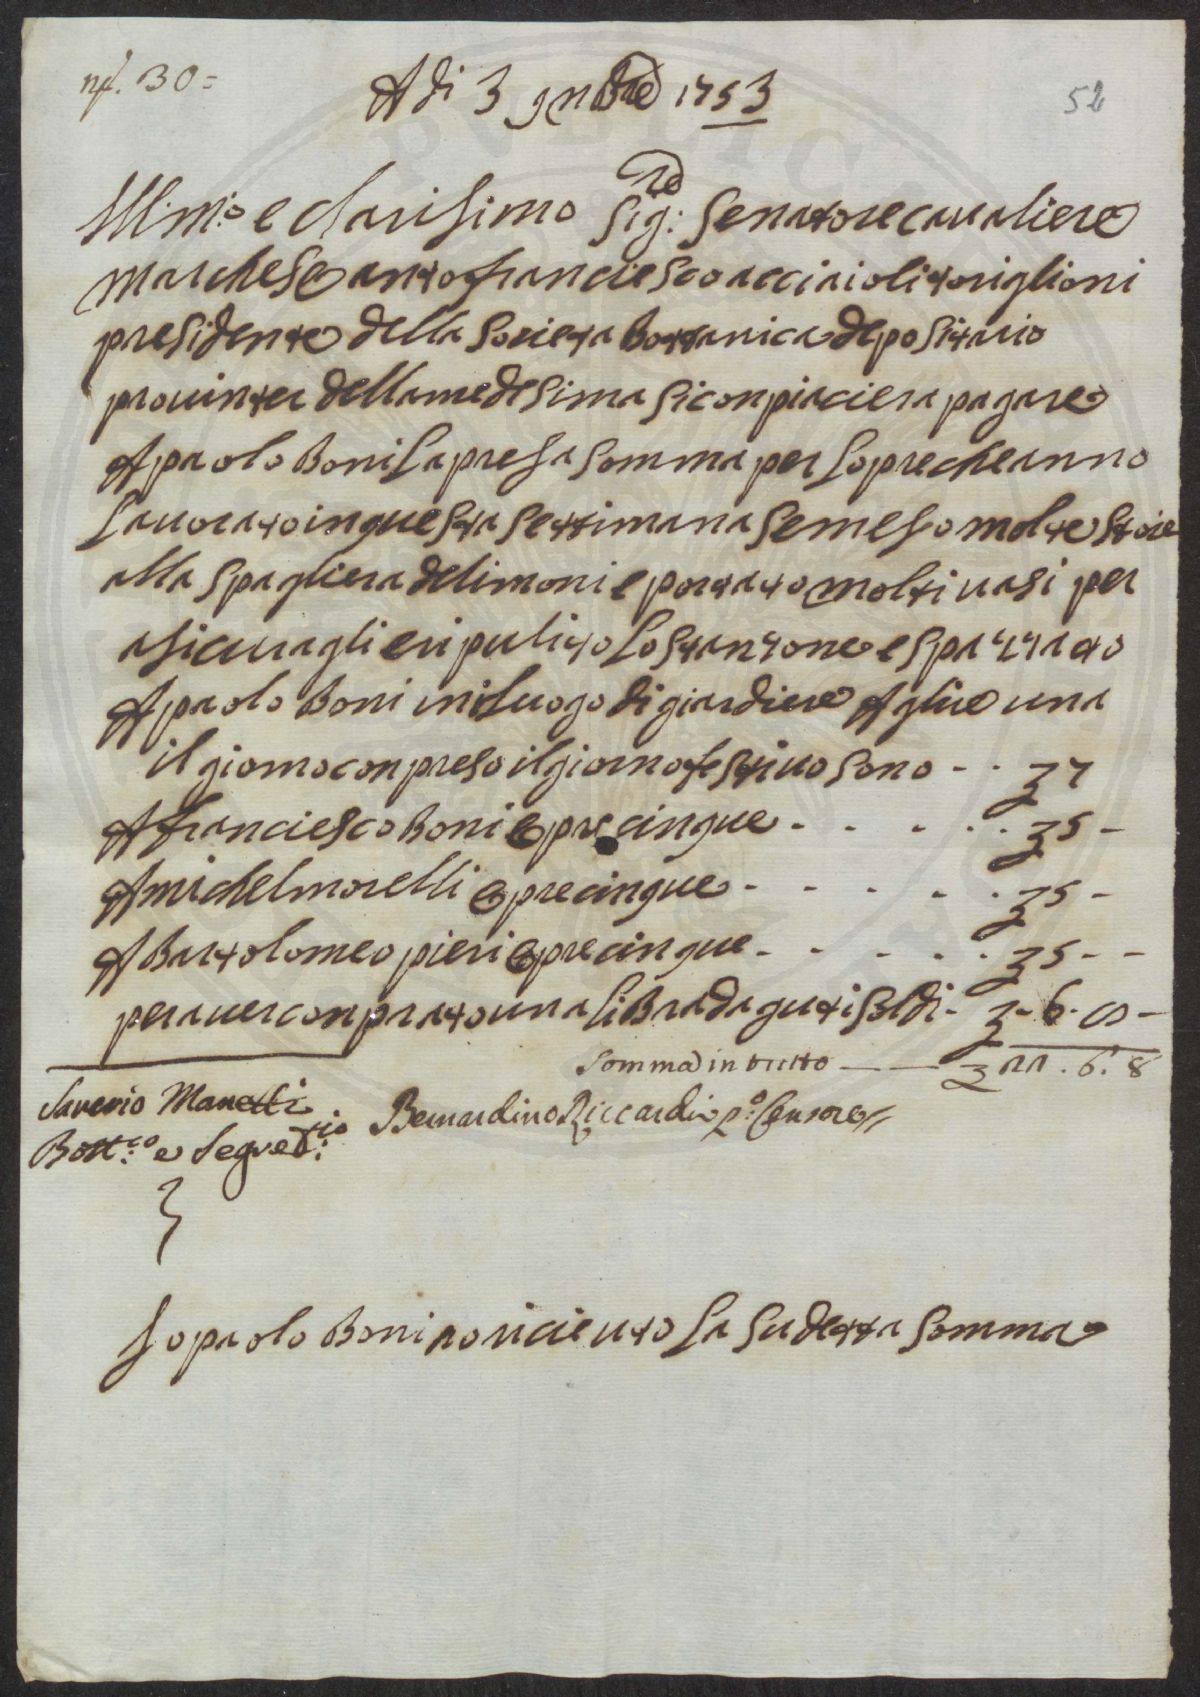 nf. 30=
A di 3 9mbre 1753
52
Ill:mo e clarisimo Sig:re Senatore cavaliere
marchese anto franciesco acciaioli toriglioni
presidente della Societa Bottanica depositario
provinter della medesima si conpiaciera pagare
A paolo Boni La presa Somma per Lopre che anno
Lavorato in questa Settimana se meso molte Stoie
alla Spagliera de limoni e portato molti vasi per
asicuragli e ripulito Lo Stanzone e Spazzato
A paolo Boni in Luogo di giardiere A lire una
il giorno conpreso il giorno festivo Sono - - £ 7
A franciesco Boni opre cinque - - - - - £ 5 -
A michel morelli opre cinque - - - - - £ 5 -
A Bartolomeo pieri opre cinque - - - - - £ 5 - -
per aver conprato una liBra daguti Soldi - £ - 6. 8 -
Somma in tutto — — £ 22. 6. 8
Saverio Manetti
Bott:co e Segret:rio
Bernardino Riccardi p:o Censore
Io paolo Boni o riceuto La Sudetta Somma